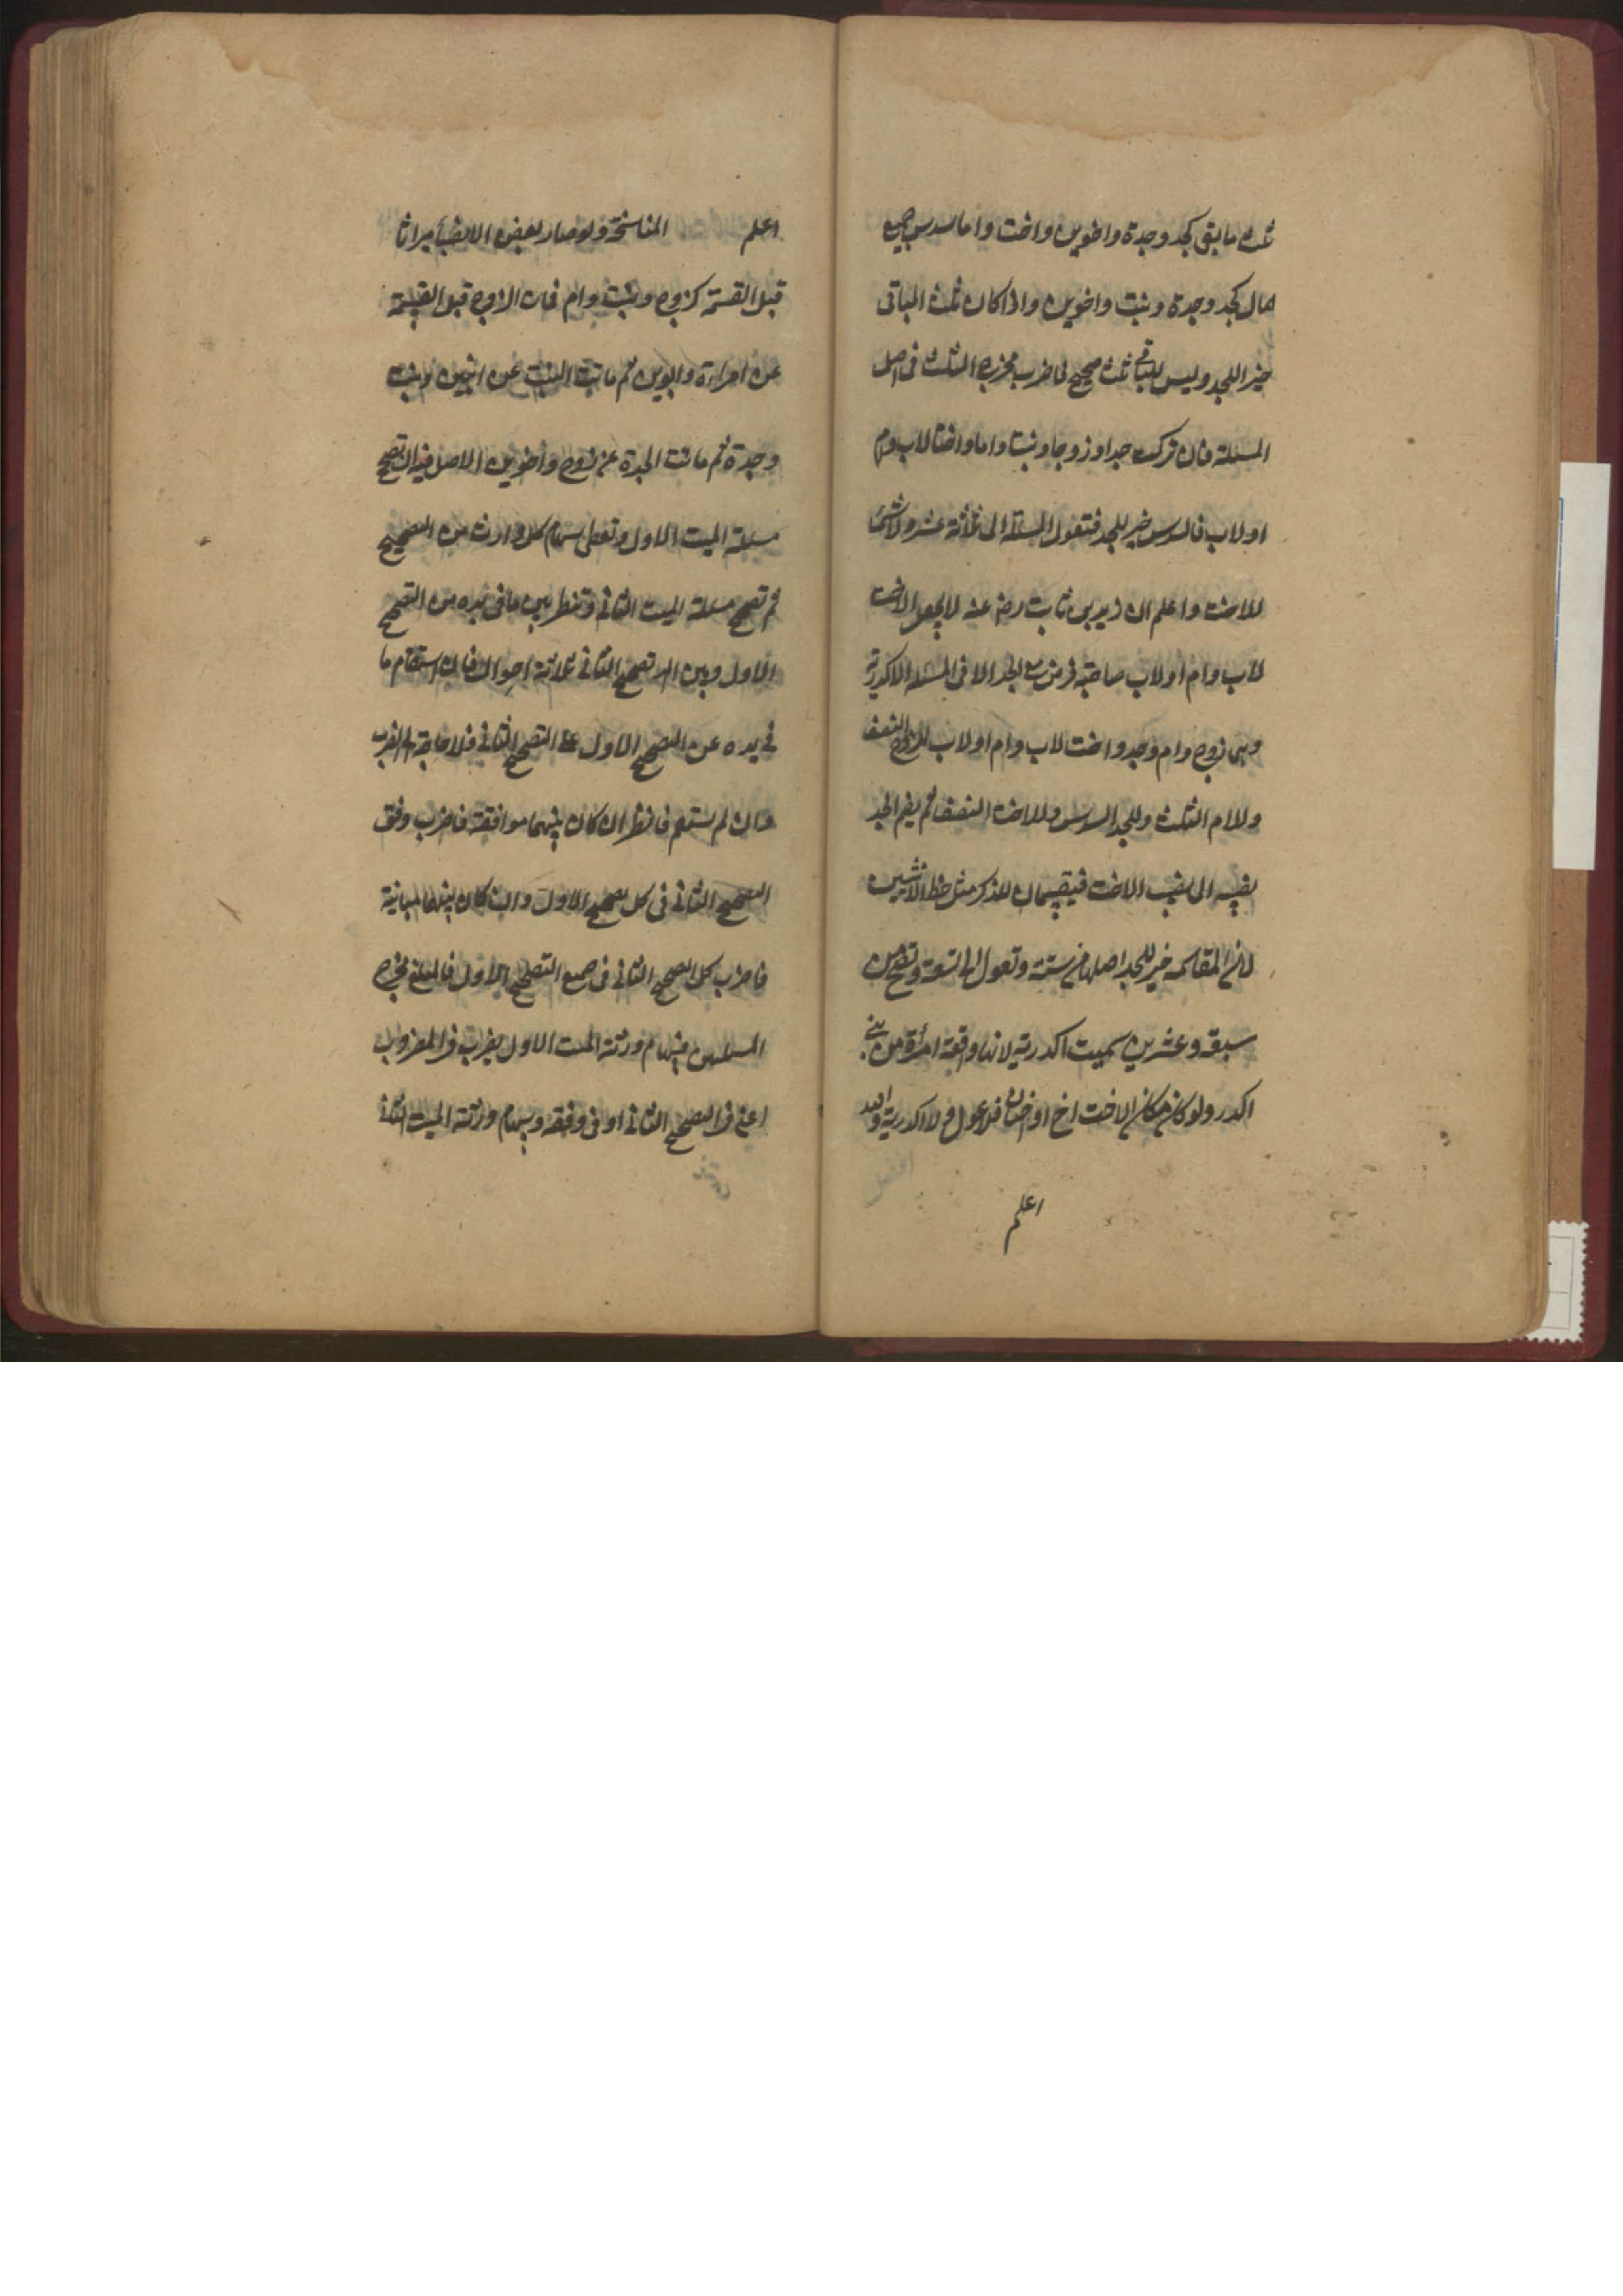 ثلث ما بقى كجد وجدة واخوين واخت واما سدس جميع
المال كجد وجدة وبنت واخوين واذا كان ثلث الباقى
خيرا للجد وليس للباقى ثلث صحيح فاضرب مخرج الثلث فى اصل
المسئلة فان تركت جدا وزوجا وبنتا واما واختا لاب وام
او لاب فالسدس خير للجد فتعول المسئلة الى ثلثة عشر ولا شئ
للاخت واعلم ان زيد بن ثابت رض عنه لا يجعل الاخت
لاب وام او لاب صاحبة فرض مع الجد الا فى المسئلة الاكدرية
وهى زوج وام وجد واخت لاب وام او لاب للزوج النصف
وللام الثلث وللجد السدس وللاخت النصف ثم يضم الجد
نصيبه الى نصيب الاخت فيقسمان للذكر مثل حظ الانثيين
لان المقاسمة خير للجد اصلها من ستة وتعول الى تسعة وتصح من
سبعة وعشرين سميت اكدرية لانها واقعة امرأة من بنى
اكدر ولو كان مكان الاخت اخ او اختان فلا عول ولا اكدرية والله
اعلم
اعلم المناسخة ولو صار بعض الانصباء ميراثا
قبل القسمة كزوج وبنت وام فمات الزوج قبل القسمة
عن امراءة وابوين ثم ماتت البنت عن ابنين وبنت
وجدة ثم ماتت الجدة عن زوج واخوين الاصل فيه ان تصحح
مسئلة الميت الاول وتعطى سهام كل وارث من التصحيح
ثم تصحح مسئلة الميت الثانى وتنظر بين ما فى يده من التصحيح
الاول وبين التصحيح الثانى ثلاثة احوال فان استقام ما
فى يده عن التصحيح الاول على التصحيح الثانى فلا حاجة الى الضرب
وان لم يستقم فانظر ان كان بينهما موافقة فاضرب وفق
التصحيح الثانى فى كل تصحيح الاول وان كان بينهما مباينة
فاضرب كل التصحيح الثانى فى جميع التصحيح الاول فالمبلغ مخرج
المسئلتين فسهام ورثة الميت الاول يضرب فى المضروب
اعنى فى التصحيح الثانى او فى وفقه وسهام ورثة الميت الثانى